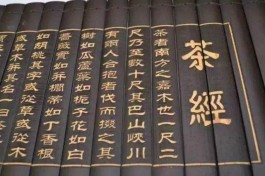 茶經
茶者南方之嘉木也一尺二
尺乃至數十尺其巴山峽川
有兩人合抱者伐而掇之其
樹如瓜蘆葉如梔子花如白
薔薇實如栟櫚蒂如丁香根
如胡桃其字或從草或從木
或草木其名一曰